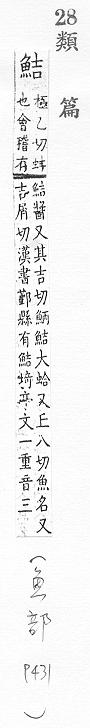 28
類篇
鮚
極乙切蚌
也會稽有
結醬又其吉切鮞鮚大蛤又丘八切魚名又
吉屑切漢書鄞縣有鮚埼亭文一重音三
(魚部 P431)